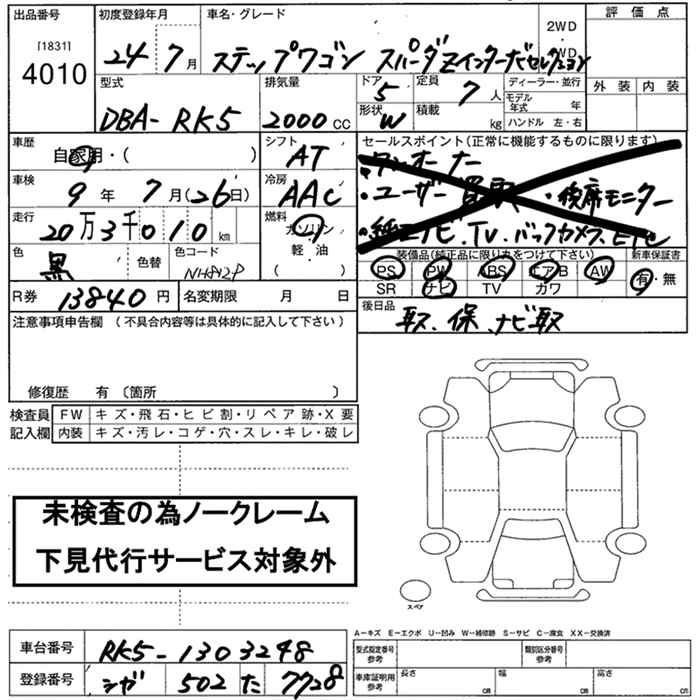 出品番号 初度登録年月 車名・グレード 評価点
[1831] 2WD
4010 24年7月 ステップワゴン スパーダZインターナビセレクション WD
外装 内装
型式 排気量 ドア 定員 ディーラー・並行
5 7人 モデル年式 年
DBA-RK5 2000cc 形状 W 積載 kg ハンドル 左・右
車歴 シフト セールスポイント(正常に機能するものに限ります)
自家用・( ) AT ワンオーナー
車検 冷房 ・ユーザー買取 ・後席モニター
9年7月(26日) AAC
走行 燃料 ・純正ナビ、TV、バックカメラ、ETC
20万3千010km ガソリン
軽・油
( )
色 色替 色コード 装備品(純正品に限り丸をつけて下さい) 新車保証書
黒 NH812P PS PW ABS エアB AW 有・無
SR ナビ TV カワ
R券 13840円 名変期限 月 日 後日品
取、保、ナビ取
注意事項申告欄(不具合内容等は具体的に記入して下さい)
修復歴 有〔箇所 〕
検査員 FW キズ・飛石・ヒビ割・リペア跡・X要
記入欄 内装 キズ・汚レ・コゲ・穴・スレ・キレ・破レ
未検査の為ノークレーム
下見代行サービス対象外
スペア
A−キズ E−エクボ U−凹み W−補修跡 S−サビ C−腐食 XX−交換済
車台番号 RK5-1303248 型式指定番号 参考 類別区分番号 参考
登録番号 シガ 502 た 7728 車庫証明用 参考 長さ cm 幅 cm 高さ cm